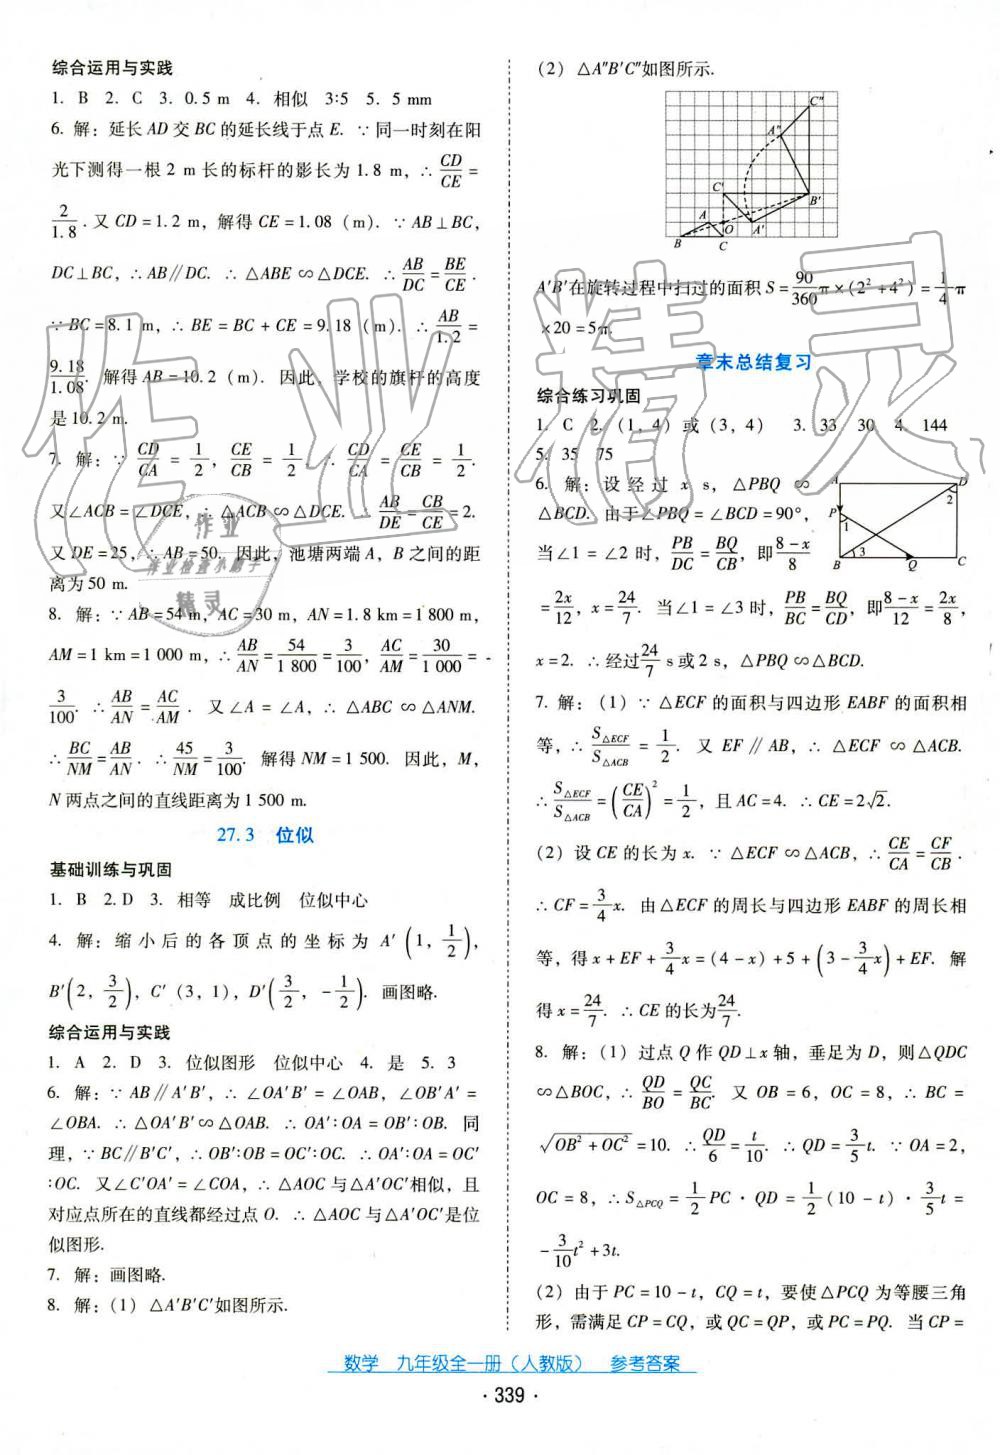 综合运用与实践
1. B 2. C 3. 0.5 m 4. 相似 3∶5 5. 5 mm
6. 解:延长 AD 交 BC 的延长线于点 E. ∵ 同一时刻在阳
光下测得一根 2 m 长的标杆的影长为 1.8 m, ∴ CD/CE =
2/1.8. 又 CD = 1.2 m, 解得 CE = 1.08 (m). ∵ AB⊥BC,
DC⊥BC, ∴ AB∥DC. ∴ △ABE∽△DCE. ∴ AB/DC = BE/CE.
∵ BC = 8.1 m, ∴ BE = BC + CE = 9.18 (m). ∴ AB/1.2 =
9.18/1.08. 解得 AB = 10.2 (m). 因此, 学校的旗杆的高度
是 10.2 m.
7. 解: ∵ CD/CA = 1/2, CE/CB = 1/2, ∴ CD/CA = CE/CB = 1/2.
又∠ACB = ∠DCE, ∴ △ACB∽△DCE. ∴ AB/DE = CB/CE = 2.
又 DE = 25, ∴ AB = 50. 因此, 池塘两端 A, B 之间的距
离为 50 m.
8. 解: ∵ AB = 54 m, AC = 30 m, AN = 1.8 km = 1 800 m,
AM = 1 km = 1 000 m, ∴ AB/AN = 54/1 800 = 3/100, AC/AM = 30/1 000 =
3/100. ∴ AB/AN = AC/AM. 又∠A = ∠A, ∴ △ABC∽△ANM.
∴ BC/NM = AB/AN. ∴ 45/NM = 3/100. 解得 NM = 1 500. 因此, M,
N 两点之间的直线距离为 1 500 m.
27.3 位似
基础训练与巩固
1. B 2. D 3. 相等 成比例 位似中心
4. 解:缩小后的各顶点的坐标为 A′(1, 1/2),
B′(2, 3/2), C′(3, 1), D′(3/2, -1/2). 画图略.
综合运用与实践
1. A 2. D 3. 位似图形 位似中心 4. 是 5. 3
6. 解: ∵ AB∥A′B′, ∴ ∠OA′B′ = ∠OAB, ∠OB′A′ =
∠OBA. ∴ △OA′B′∽△OAB. ∴ OA′∶OA = OB′∶OB. 同
理, ∵ BC∥B′C′, ∴ OB′∶OB = OC′∶OC. ∴ OA′∶OA = OC′
∶OC. 又∠C′OA′ = ∠COA, ∴ △AOC 与△A′OC′相似, 且
对应点所在的直线都经过点 O. ∴ △AOC 与△A′OC′是位
似图形.
7. 解:画图略.
8. 解: (1) △A′B′C′如图所示.
(2) △A″B′C″如图所示.
C″
A″
C′
B′
A
O
A′
B
C
A′B′在旋转过程中扫过的面积 S = 90/360 π × (2² + 4²) = 1/4 π
× 20 = 5π.
章末总结复习
综合练习巩固
1. C 2. (1, 4) 或 (3, 4) 3. 33 30 4. 144
5. 35 75
6. 解:设经过 x s, △PBQ∽
△BCD. 由于∠PBQ = ∠BCD = 90°,
当∠1 = ∠2 时, PB/DC = BQ/CB, 即 8-x/8
A
D
2
P
1
3
B
Q
C
= 2x/12, x = 24/7. 当∠1 = ∠3 时, PB/BC = BQ/CD, 即 8-x/12 = 2x/8,
x = 2. ∴ 经过 24/7 s 或 2 s, △PBQ∽△BCD.
7. 解: (1) ∵ △ECF 的面积与四边形 EABF 的面积相
等, ∴ S△ECF/S△ACB = 1/2. 又 EF∥AB, ∴ △ECF∽△ACB.
∴ S△ECF/S△ACB = (CE/CA)² = 1/2, 且 AC = 4. ∴ CE = 2√2.
(2) 设 CE 的长为 x. ∵ △ECF∽△ACB, ∴ CE/CA = CF/CB.
∴ CF = 3/4 x. 由△ECF 的周长与四边形 EABF 的周长相
等, 得 x + EF + 3/4 x = (4 - x) + 5 + (3 - 3/4 x) + EF. 解
得 x = 24/7. ∴ CE 的长为 24/7.
8. 解: (1) 过点 Q 作 QD⊥x 轴, 垂足为 D, 则△QDC
∽△BOC, ∴ QD/BO = QC/BC. 又 OB = 6, OC = 8, ∴ BC =
√OB² + OC² = 10. ∴ QD/6 = t/10. ∴ QD = 3/5 t. ∵ OA = 2,
OC = 8, ∴ S△PCQ = 1/2 PC · QD = 1/2 (10 - t) · 3/5 t =
- 3/10 t² + 3t.
(2) 由于 PC = 10 - t, CQ = t, 要使△PCQ 为等腰三角
形, 需满足 CP = CQ, 或 QC = QP, 或 PC = PQ. 当 CP =
数学 九年级全一册 (人教版) 参考答案
· 339 ·
作业精灵
作业
作业检查小助手
精灵